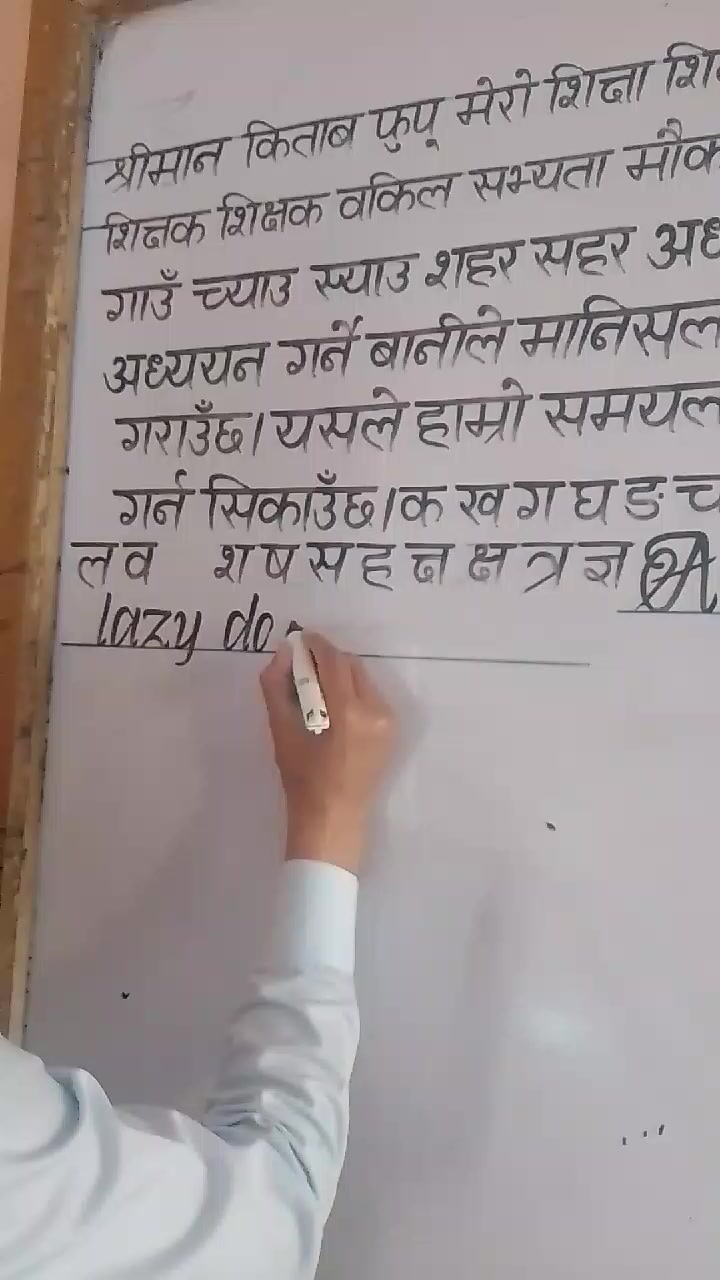 श्रीमान किताब फुपू मेरो शिक्षा
शिक्षक शिक्षक वकिल सभ्यता
गाउँ च्याउ स्याउ शहर सहर
अध्ययन गर्ने बानीले
गराउँछ। यसले हाम्रो
गर्न सिकाउँछ। क ख ग घ ङ च
ल व श ष स ह क्ष क्ष त्र ज्ञ
lazy do